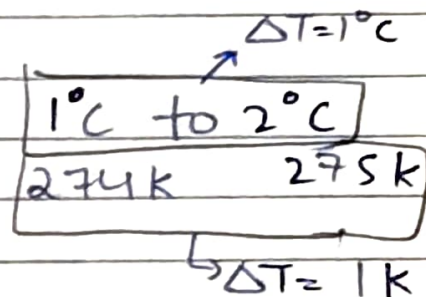 ΔT=1°C
1°C to 2°C
274K 275K
ΔT= 1K